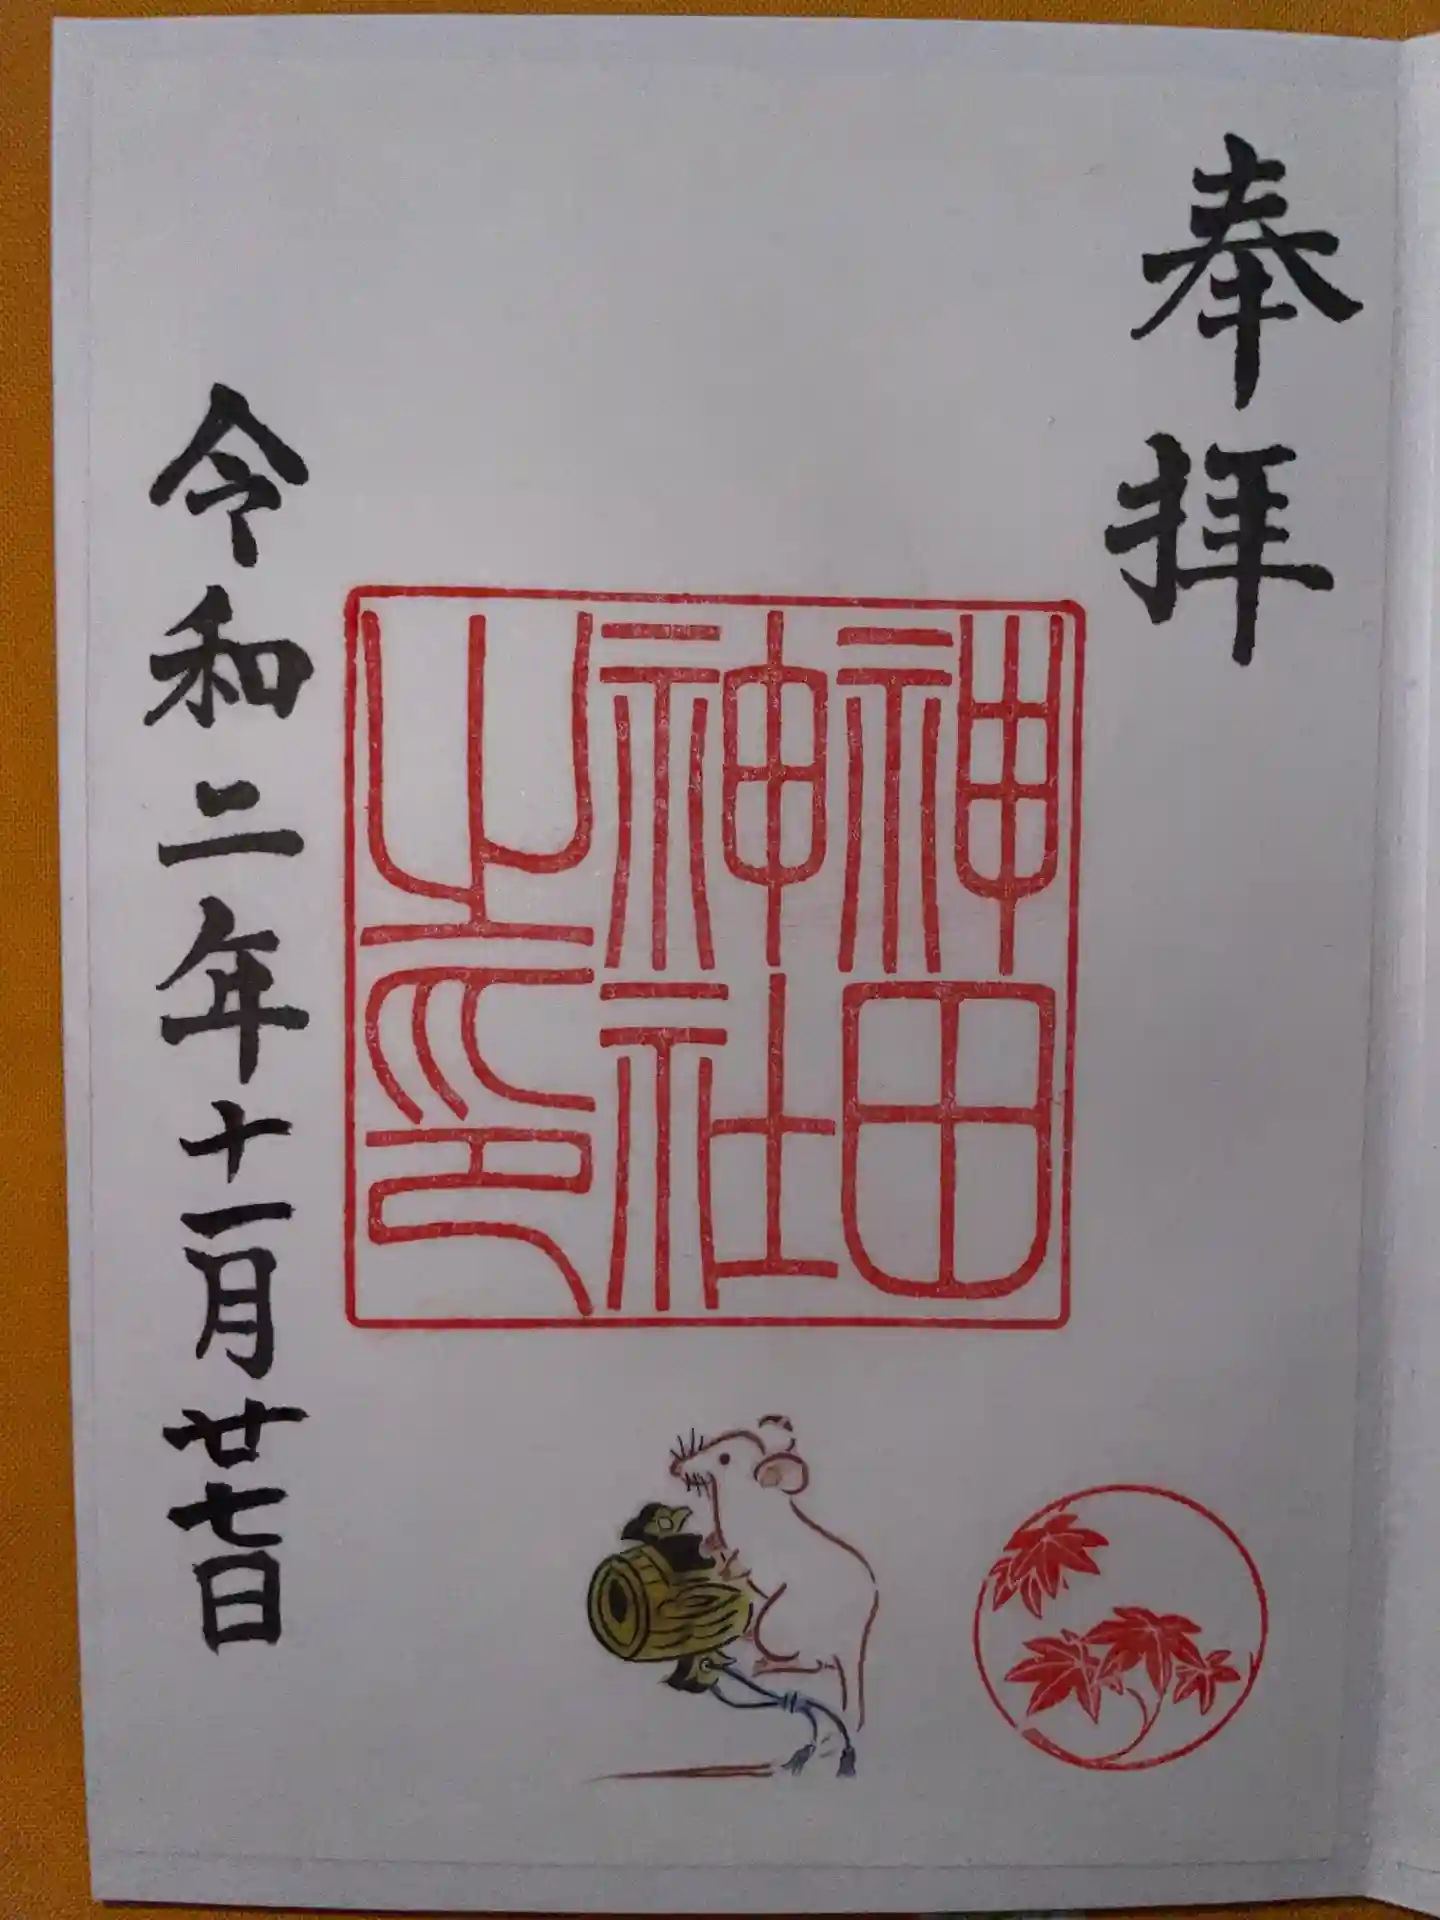 奉拝
神田
神社
之印
令和二年十一月廿七日